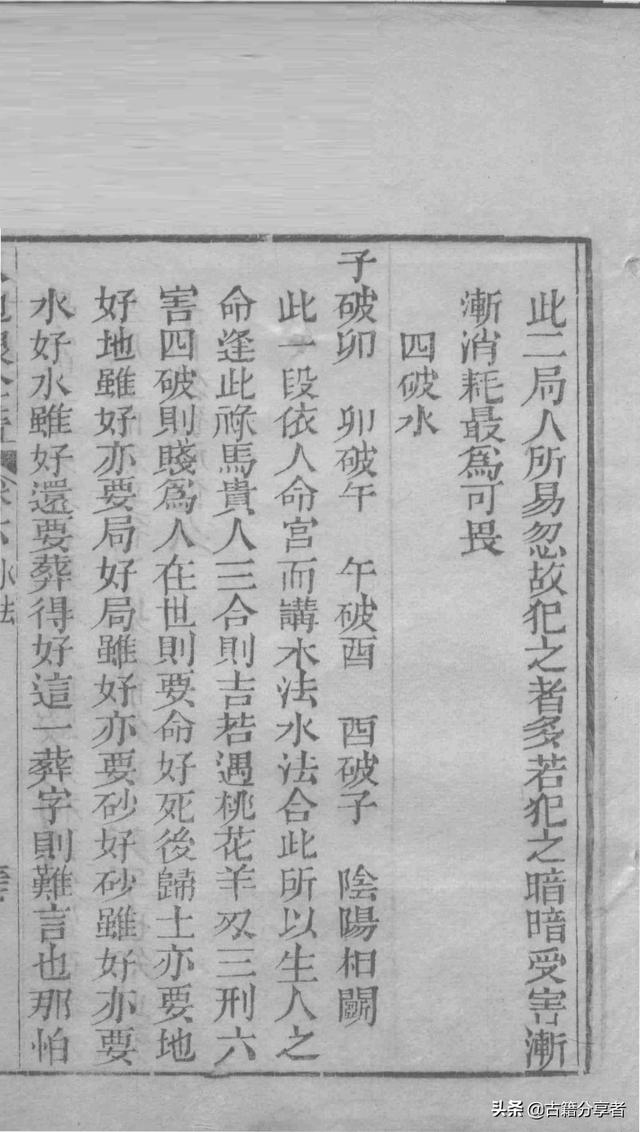 此二局人所易忽故犯之者多若犯之暗暗受害漸
漸消耗最爲可畏
四破水
子破卯 卯破午 午破酉 酉破子 陰陽相關
此一段依人命宮而講水法水法合此所以生人之
命逢此祿馬貴人三合則吉若遇桃花羊刄三刑六
害四破則賤爲人在世則要命好死後歸土亦要地
好地雖好亦要局好局雖好亦要砂好砂雖好亦要
水好水雖好還要葬得好這一葬字則難言也那怕
水法
头条 @古籍分享者